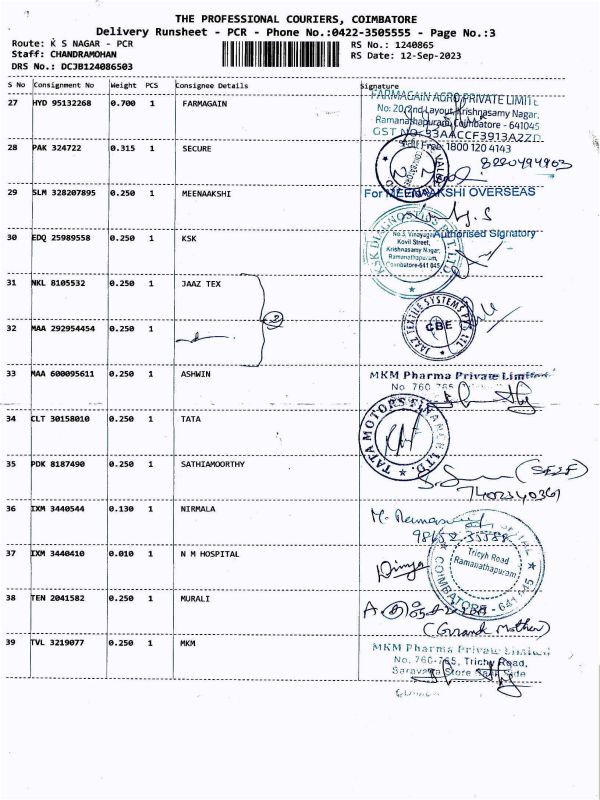 THE PROFESSIONAL COURIERS, COIMBATORE
Delivery Runsheet - PCR - Phone No.:0422-3505555 - Page No.:3
Route: K S NAGAR - PCR
RS No.: 1240865
Staff: CHANDRAMOHAN
RS Date: 12-Sep-2023
DRS No.: DCJB124086503
S No Consignment No Weight PCS Consignee Details Signature
27 HYD 95132268 0.700 1 FARMAGAIN
FARMAGAIN AGRO PRIVATE LIMITE
No: 20, 2nd Layout, Krishnasamy Nagar,
Ramanathapuram, Coimbatore - 641045
GST No: 33AACCF3913A2ZD
28 PAK 324722 0.315 1 SECURE
Free: 1800 120 4143
8220494903
29 SLM 328207895 0.250 1 MEENAAKSHI
For MEENAAKSHI OVERSEAS
Authorised Signatory
30 EDQ 25989558 0.250 1 KSK
KSK DIAGNOSTICS PVT. LTD
No.5, Vinayagar
Kovil Street,
Krishnasamy Nagar,
Ramanathapuram,
Coimbatore-641 045
31 NKL 8105532 0.250 1 JAAZ TEX
2
JAAZ TEXTILE SYSTEMS PVT LTD
CBE
32 MAA 292954454 0.250 1
33 MAA 600095611 0.250 1 ASHWIN
MKM Pharma Private Limited
No 760 765
34 CLT 30158010 0.250 1 TATA
TATA MOTORS FINANCE LTD.
35 PDK 8187490 0.250 1 SATHIAMOORTHY
(SELF)
7402340361
36 IXM 3440544 0.130 1 NIRMALA
37 IXM 3440410 0.010 1 N M HOSPITAL
Trichy Road
Ramanathapuram
COIMBATORE - 641 045
38 TEN 2041582 0.250 1 MURALI
(Grand Mother)
39 TVL 3219077 0.250 1 MKM
MKM Pharma Private Limited
No. 760-765, Trichy Road,
Saravana Store Back Side